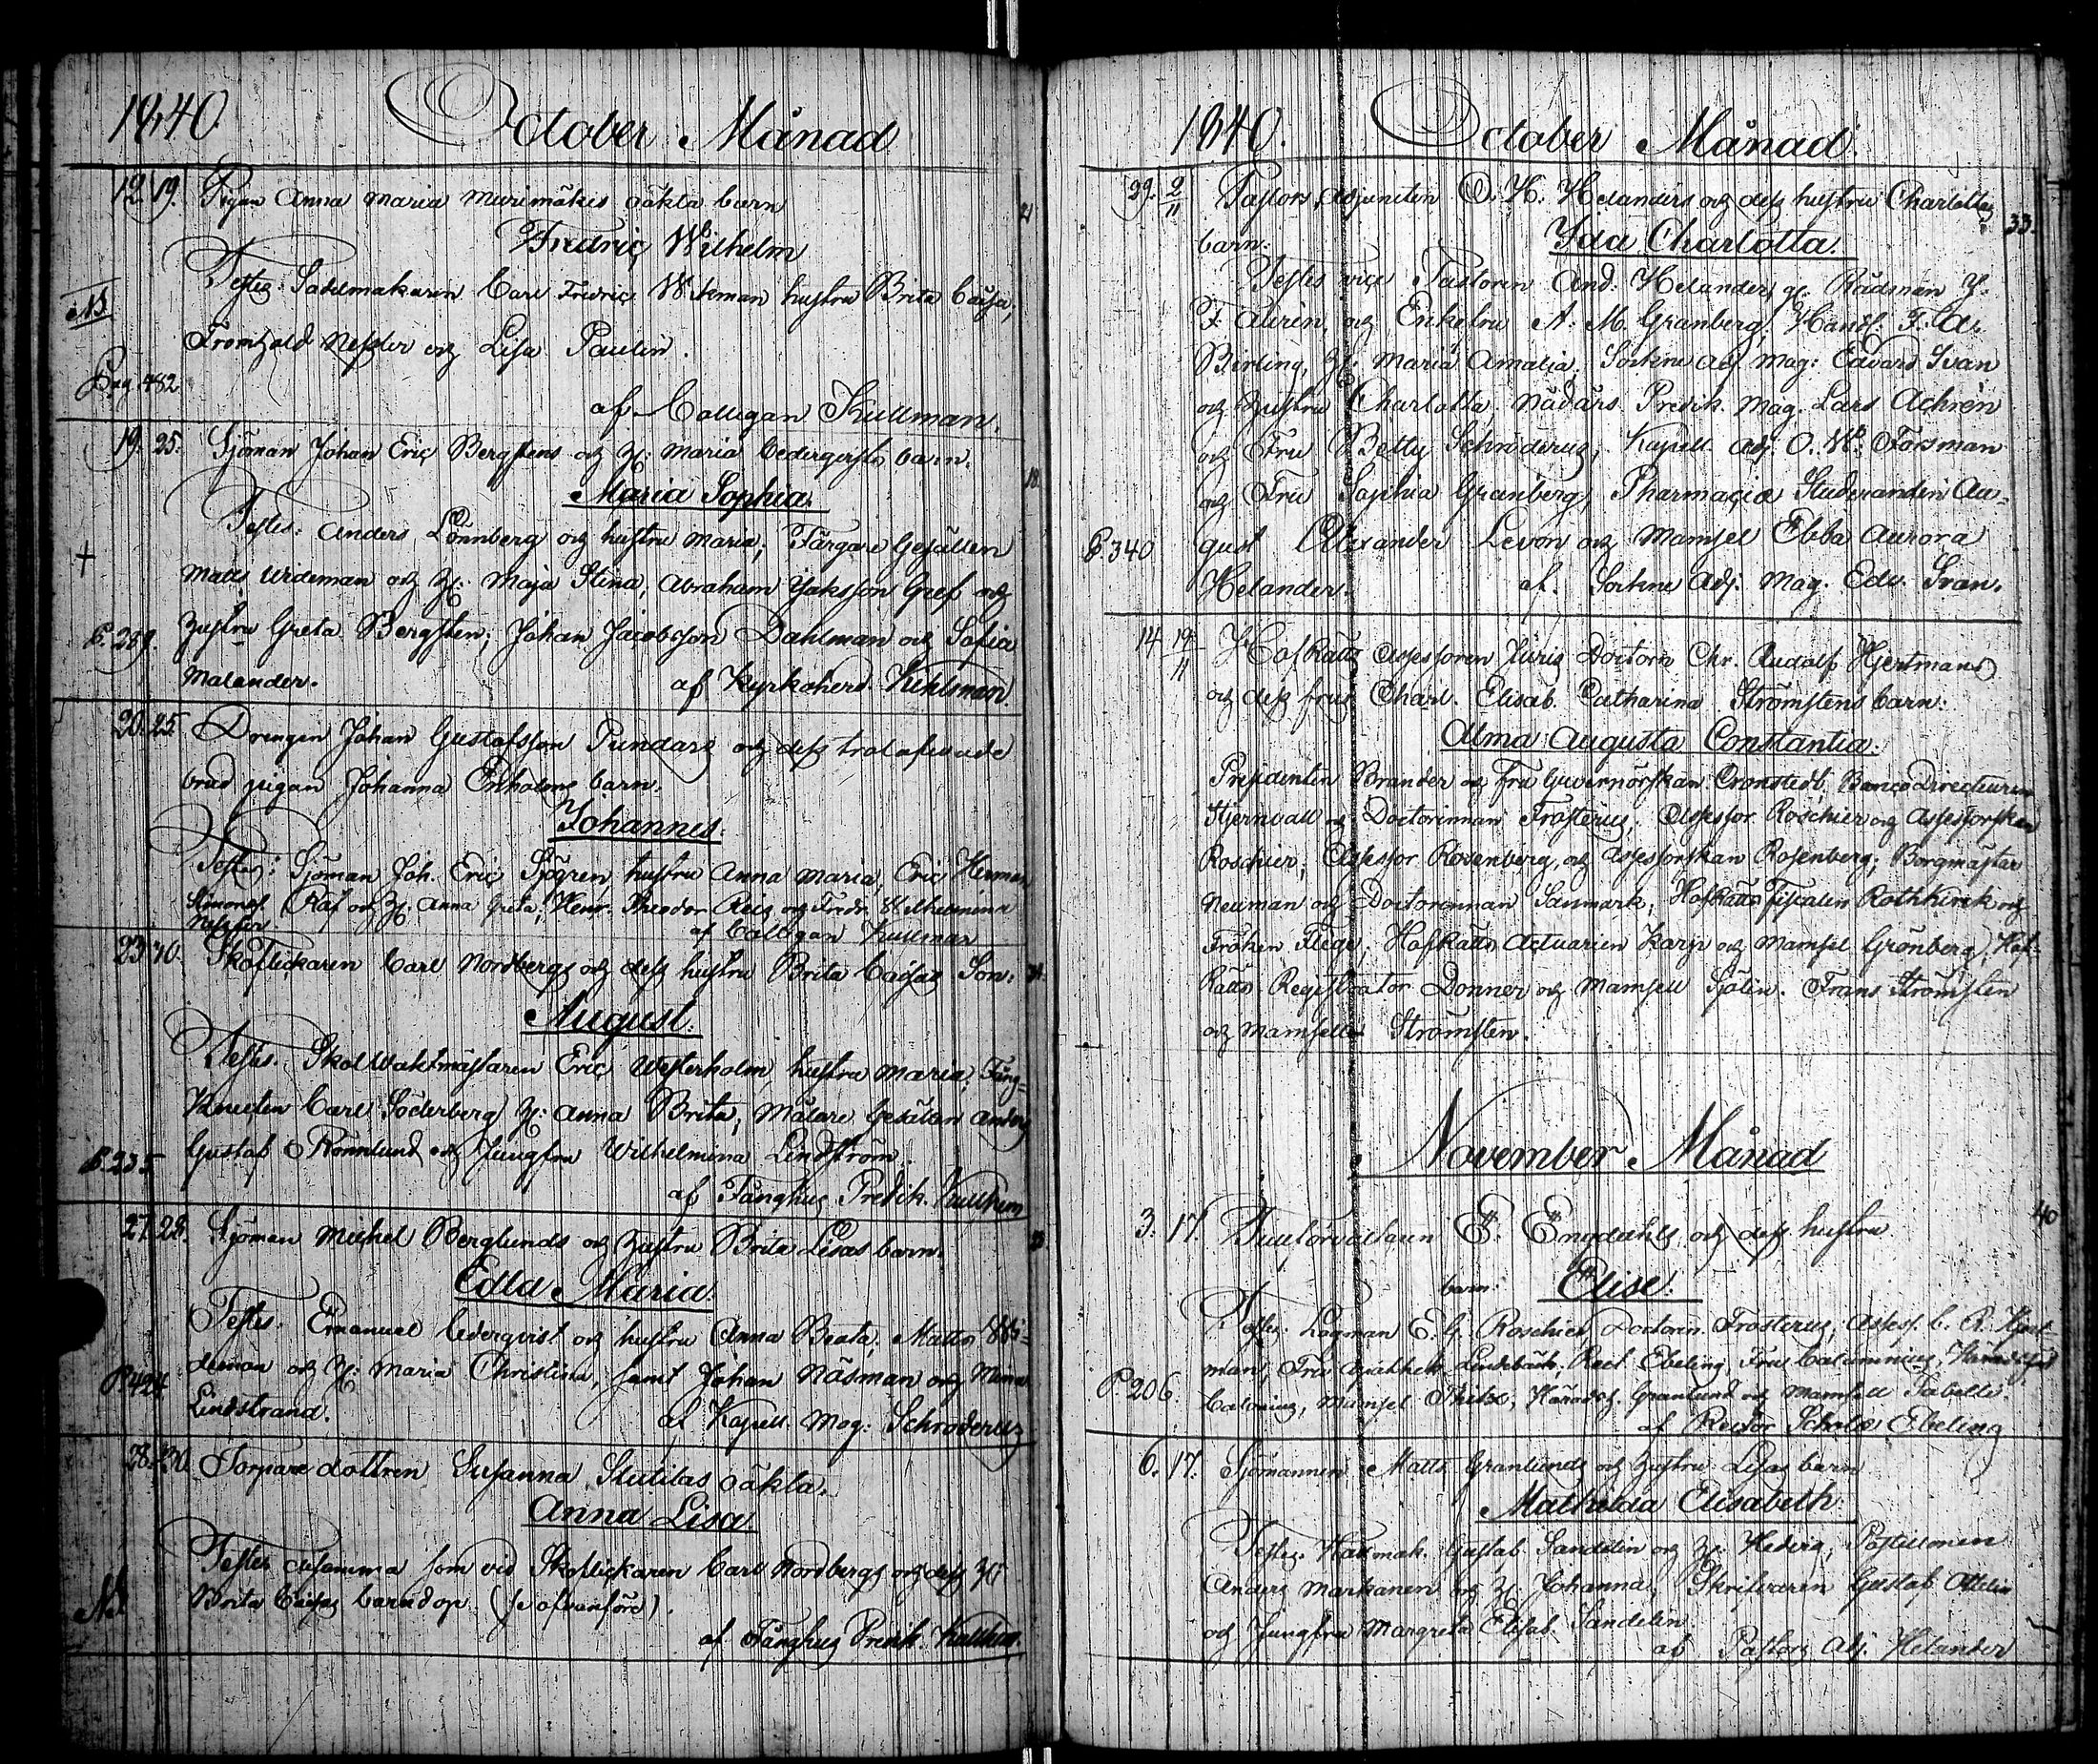 1840. October Månad
12. 19. Pigan Anna Maria Murimäkis oäkta barn
21
Fredric Wilhelm
Testes: Sadelmakaren Carl Fredric Wikman hustru Brita Caisa,
N.
Nessler och Lisa Paulin.
Pag. 482
af Collegan Kullman.
19. 25. Sjöman Johan Eric Bergstens och H: Maria Cedergrens barn.
18.
Maria Sophia.
Testes: Anders Lönnberg och hustru Maria, Färgare Gesällen
†
Matts Wideman och H: Maja Stina, Abraham Jaksson Gref och
P. 259. hustru Greta Bergsten; Johan Jacobsson Dahlman och Sofia
Malander. af Kyrkoherd. Kihlman.
20. 25. Drengen Johan Gustafsson Pundars och dess trolofvade
brud pigan Johanna Enholms barn.
Johannes.
Testes: Sjöman Joh. Eric Sjögren, hustru Anna Maria, Eric Herman
Simonss. Räf och H. Anna Greta, Henr. Theodor och Fredr. Wilhelmina
Nessler af Collegan Kullman
23. 30. Skoflickaren Carl Nordbergs och dess hustru Brita Caisas Son:
August.
Testes. SkolWaktmästaren Eric Westerholm, hustru Maria, Fång-
Knecten Carl Söderberg H: Anna Brita, Målare Gesällen Anders
P. 235 Gustaf Rönnlund och Jungfru Wilhelmina Lindström.
af Fånghus Predik.
27. 28. Sjöman Michel Berglunds och hustru Brita Lisas barn.
Edla Maria.
Testes. Emanuel Cederqvist och hustru Anna Beata, Matts Wi-
P. 424 deman och H: Maria Christina, samt Johan Näsman och Mina
Lindstrand. af Kapell. Mag: Schroderus
28. 30. Torpare dottren Susanna Slutilas oäkta.
Anna Lisa
Testes desamma som vid Skoflickaren Carl Nordbergs och dess H:
N. Brita Caisas barndop. (se ofvanföre).
af Fånghus Predik.
1840. October Månad.
29. 9/11 Pastors Adjuncten O. H. Helanders och dess hustru Charlottas
33.
barn. Ida Charlotta.
Testes vice Pastoren And: Helander, Rådman J:
F. Aurén, och Enkefru A: M. Granberg, Handl: F.
Berling, H: Maria Amalia, Sockne Adj. Mag: Edvard Svan
och hustru Charlotta, Nådårs Predik. Mag. Lars Achrén
och Fru Betty Schroderus, Kapell. Adj. O. W. Forsman
och Fru Sophia Granberg, Pharmaciæ Studeranden Au-
P. 340 gust Alexander Levon och Mamsel Ebba Aurora
Helander. af Sockne Adj. Mag. Edv. Svan.
14 19/11 HofRätts Assessoren Juris Doctorn Chr. Rudolf Hjertmans
och dess frus Charl. Elisab. Catharina Strömstens barn:
Alma Augusta Constantia:
Presidenten Brander och Fru Guvernörskan Cronstedt, Banco Directeuren
Stjernvall och Doctorinnan Frosterus, Assessor Roschier och Assessorskan
Roschier; Assessor Rosenberg, och Assessorskan Rosenberg; Borgmästar
Neuman och Doctorinnan Sanmark; HofRätts Fiscalen Rothkirck och
Fröken Flege; HofRätts Actuarien Karje och Mamsel Grönberg, Hof-
Rätts Registrator Donner och Mamsell Sjölin. Frans Strömsten
och Mamsell Strömsten.
November Månad
3. 17. E. Engdahls och dess hustru
40
barn: Elise.
Testes. Lagman E. G. Roschier, Doctorn Frosterus, Assess. C. R. Hjert-
man, Fru Lindebäck, Rect. Ebeling, Fru Calamnius,
P. 206. Mamsel Granlund och Mamsell Tabelle.
af Rector Scholæ Ebeling
6. 17. Sjömannen Matts Granlunds och hustru Lisas barn
Mathilda Elisabeth.
Testes. Hattmak. Gustaf Sandelin och H: Hedvig, Postillionen
Anders Markanen och H. Johanna, Skrifvaren Gustaf Ottelin
och Jungfru Margreta Elisab. Sandelin.
af Pastors Adj. Helander